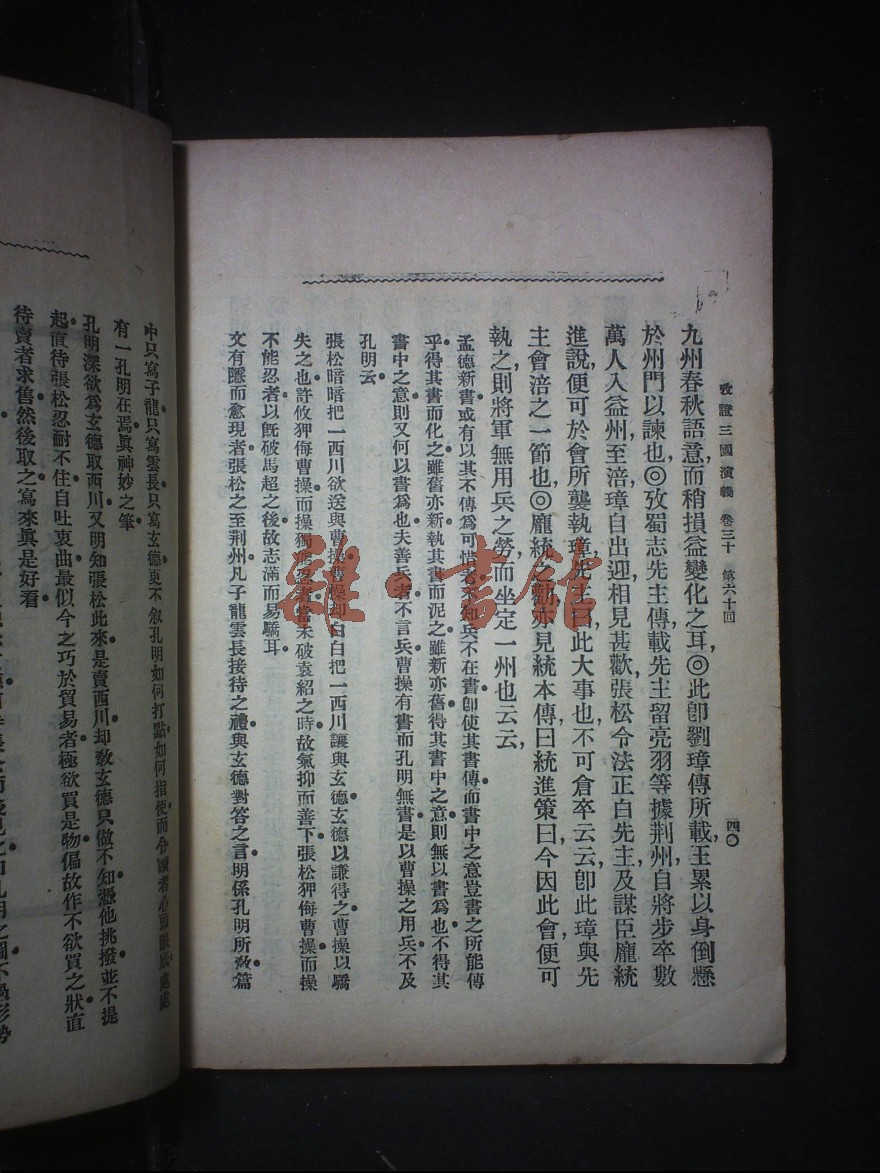 攷證三國演義 卷三十 第六十回 四〇
九州春秋語意，而稍損益變化之耳，◎此卽劉璋傳所載，王累以身倒懸
於州門以諫也，◎攷蜀志先主傳載先主留亮羽等據荆州，自將步卒數
萬人入益州，至涪，璋自出迎，相見甚歡，張松令法正白先主，及謀臣龐統
進說，便可於會所襲執璋，先主曰，此大事也，不可倉卒云云，卽此璋與先
主會涪之一節也，◎龐統之勸，亦見統本傳曰，統進策曰，今因此會，便可
執之，則將軍無用兵之勞，而坐定一州也云云，
孟德新書或有以其不傳爲可惜者不知兵不在書卽使其書傳而書中之意豈書之所能傳
乎得其書而化之雖舊亦新執其書而泥之雖新亦舊得其書中之意則無以書爲也不得其
書中之意則又何以書爲也夫善兵者不言兵曹操有書而孔明無書是以曹操之用兵不及
孔明云
張松暗暗把一西川欲送與曹操曹操却白白把一西川讓與玄德玄德以謙得之曹操以驕
失之也許攸狎侮曹操而操獨能忍者當未破袁紹之時故氣抑而善下張松狎侮曹操而操
不能忍者以旣破馬超之後故志滿而易驕耳
文有隱而愈現者張松之至荆州凡子龍雲長接待之禮與玄德對答之言明係孔明所敎篇
中只寫子龍只寫雲長只寫玄德更不叙孔明如何打點如何指使而令讀者心頭眼底處處
有一孔明在焉眞神妙之筆
孔明深欲爲玄德取西川又明知張松此來是賣西川却敎玄德只做不知憑他挑撥並不提
起直待張松忍耐不住自吐衷曲最似今之巧於貿易者極欲買是物偏故作不欲買之狀直
待賣者求售然後取之寫來眞是好看
雜·書館